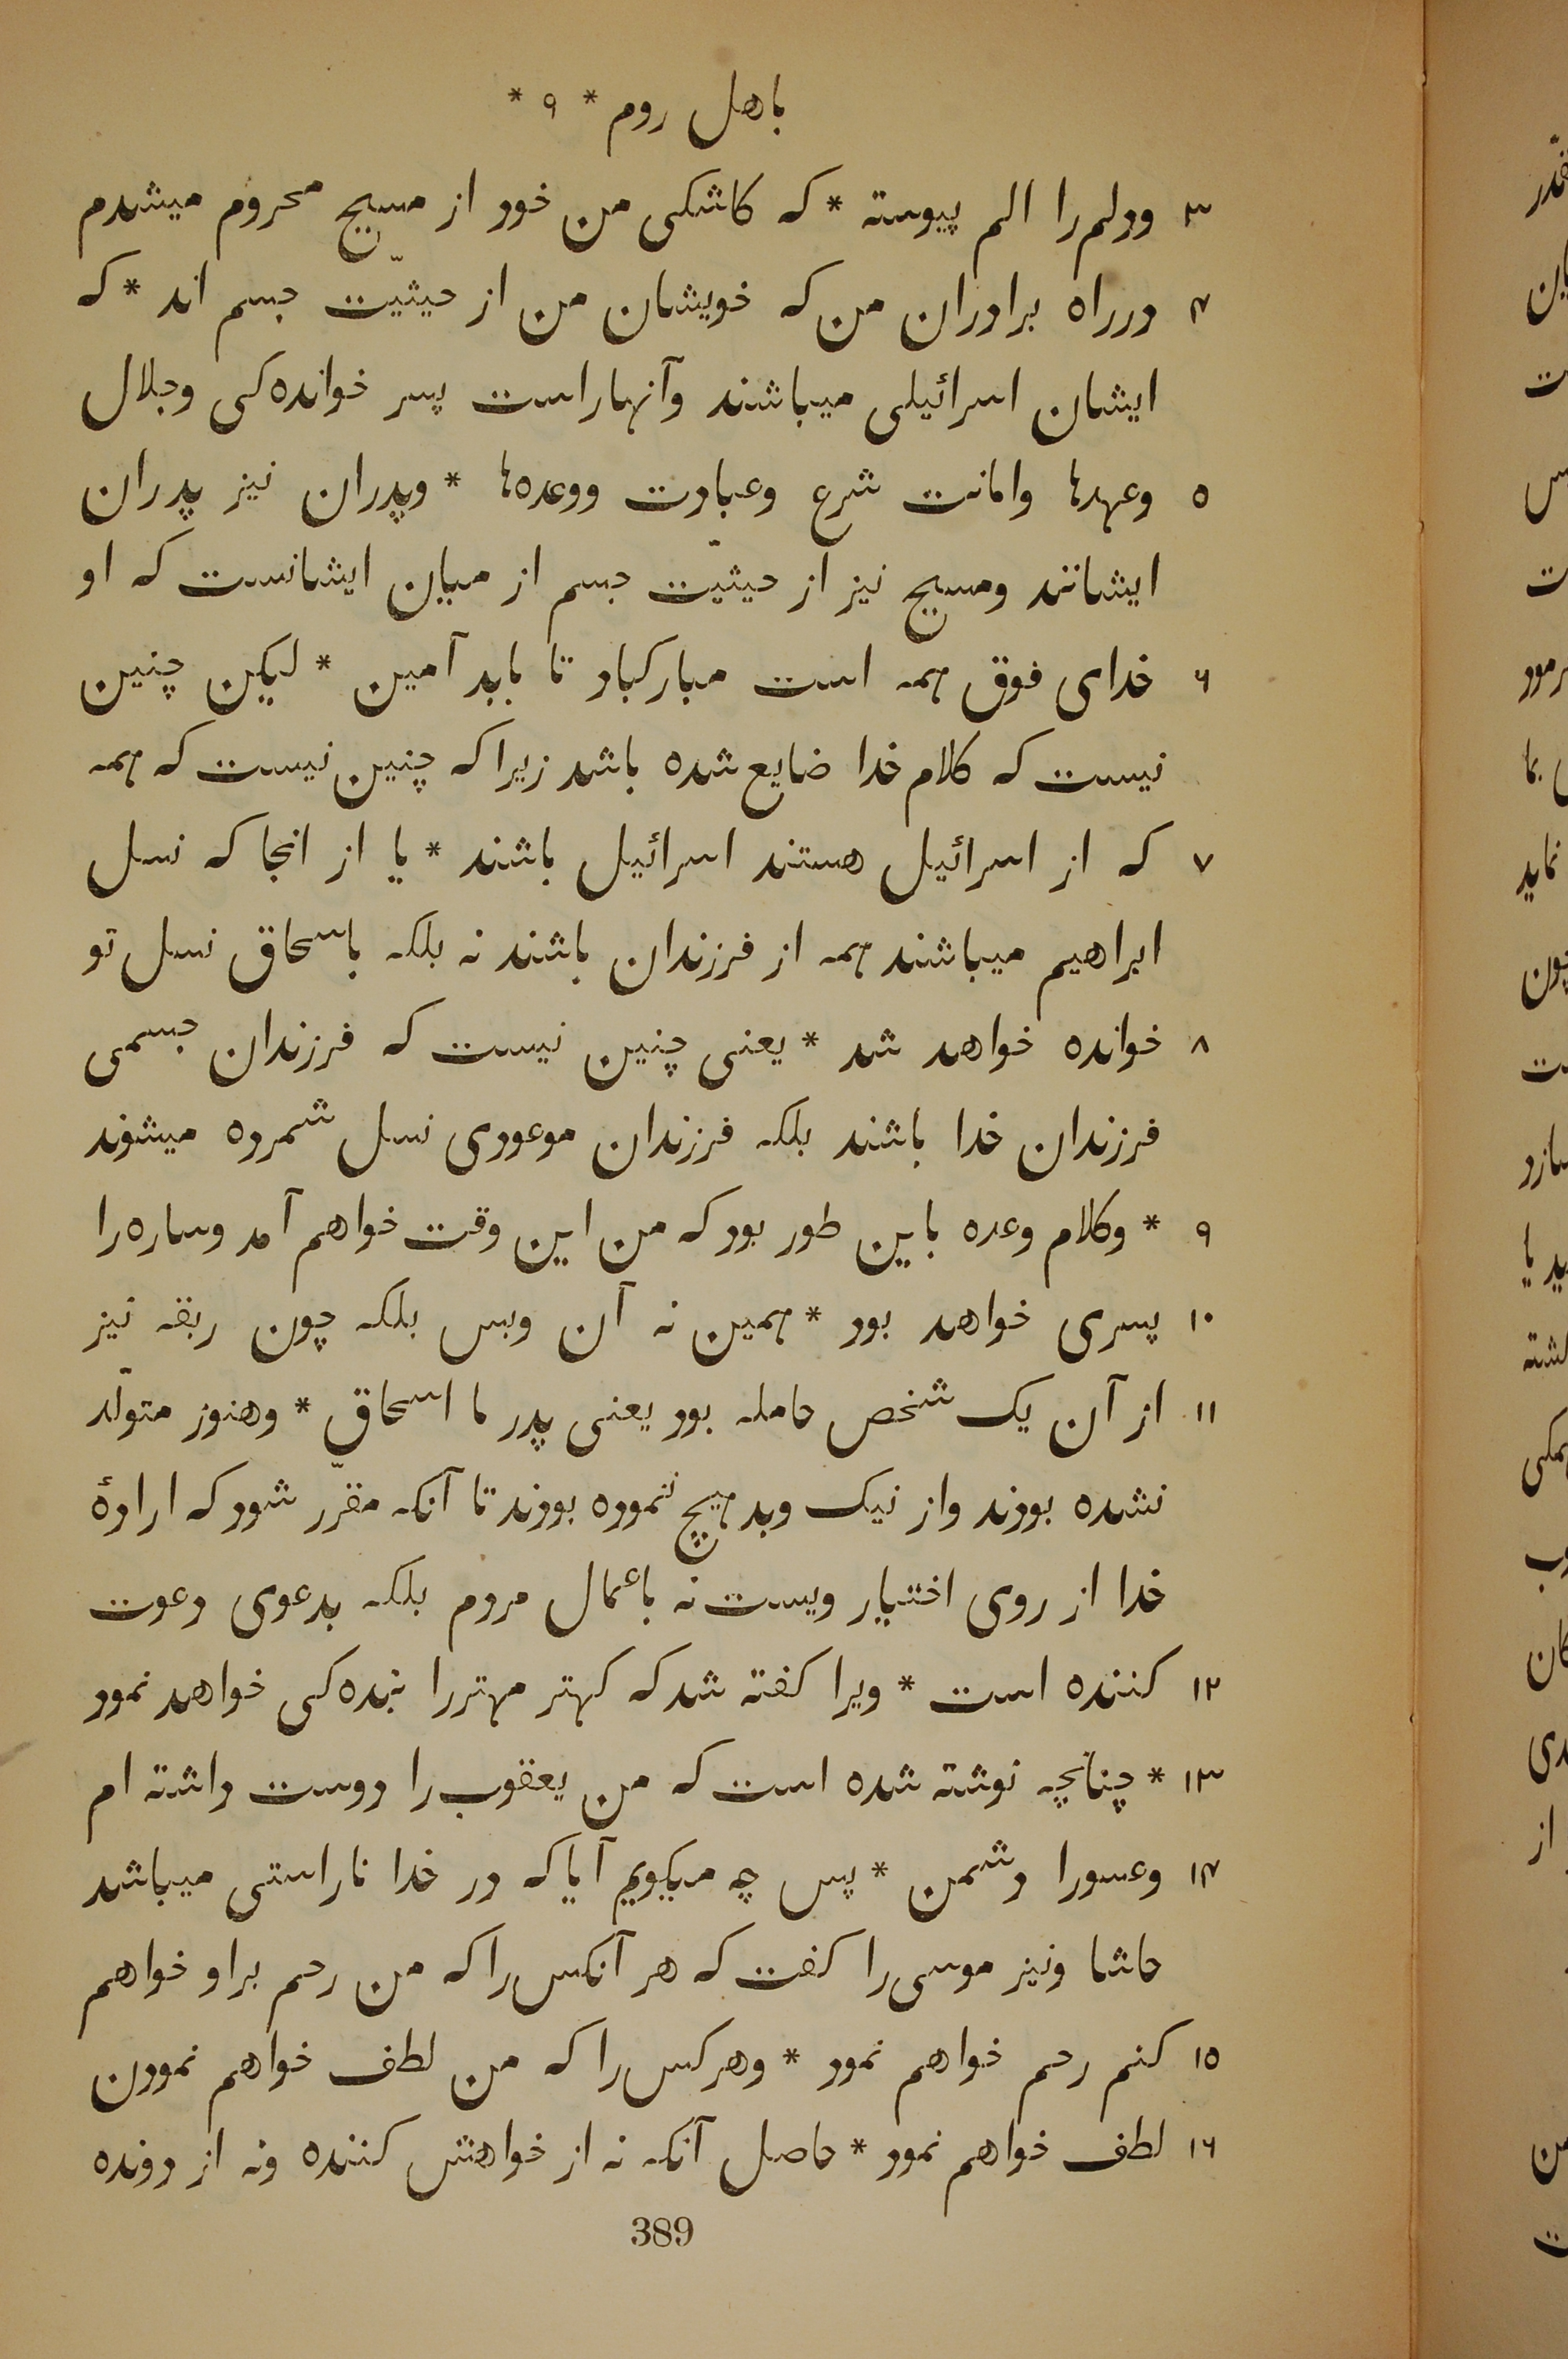 باهل روم * ۹ *
۳ ودلم را الم پیوسته * که کاشکی من خود از مسیح محروم میشدم
۴ درراه برادران من که خویشان من از حیثیّت جسم اند * که
ایشان اسرائیلی میباشند وآنهاراست پسر خوانده‌کی وجلال
۵ وعهدها وامانت شرع وعبادت ووعده‌ها * وپدران نیز پدران
ایشانند ومسیح نیز از حیثیّت جسم از میان ایشانست که او
۶ خدای فوق همه است مبارکباد تا بابد آمین * لیکن چنین
نیست که کلام خدا ضایع شده باشد زیراکه چنین نیست که همه
۷ که از اسرائیل هستند اسرائیل باشند * یا از انجا که نسل
ابراهیم میباشند همه از فرزندان باشند نه بلکه باسحاق نسل تو
۸ خوانده خواهد شد * یعنی چنین نیست که فرزندان جسمی
فرزندان خدا باشند بلکه فرزندان موعودی نسل شمرده میشوند
۹ * وکلام وعده باین طور بود که من این وقت خواهم آمد وساره را
۱۰ پسری خواهد بود * همین نه آن وبس بلکه چون ربقه نیز
۱۱ از آن یک شخص حامله بود یعنی پدر ما اسحاق * وهنوز متولّد
نشده بودند واز نیک وبد هیچ ننموده بودند تا آنکه مقرّر شود که ارادهٔ
خدا از روی اختیار ویست نه باعمال مردم بلکه بدعوی دعوت
۱۲ کننده است * ویرا کفته شد که کهتر مهتررا بنده‌کی خواهد نمود
۱۳ * چنانچه نوشته شده است که من یعقوب را دوست داشته ام
۱۴ وعسورا دشمن * پس چه میکویم آیا که در خدا ناراستی میباشد
حاشا ونیز موسی را کفت که هر آنکس را که من رحم براو خواهم
۱۵ کنم رحم خواهم نمود * وهرکس را که من لطف خواهم نمودن
۱۶ لطف خواهم نمود * حاصل آنکه نه از خواهش کننده ونه از دونده
389